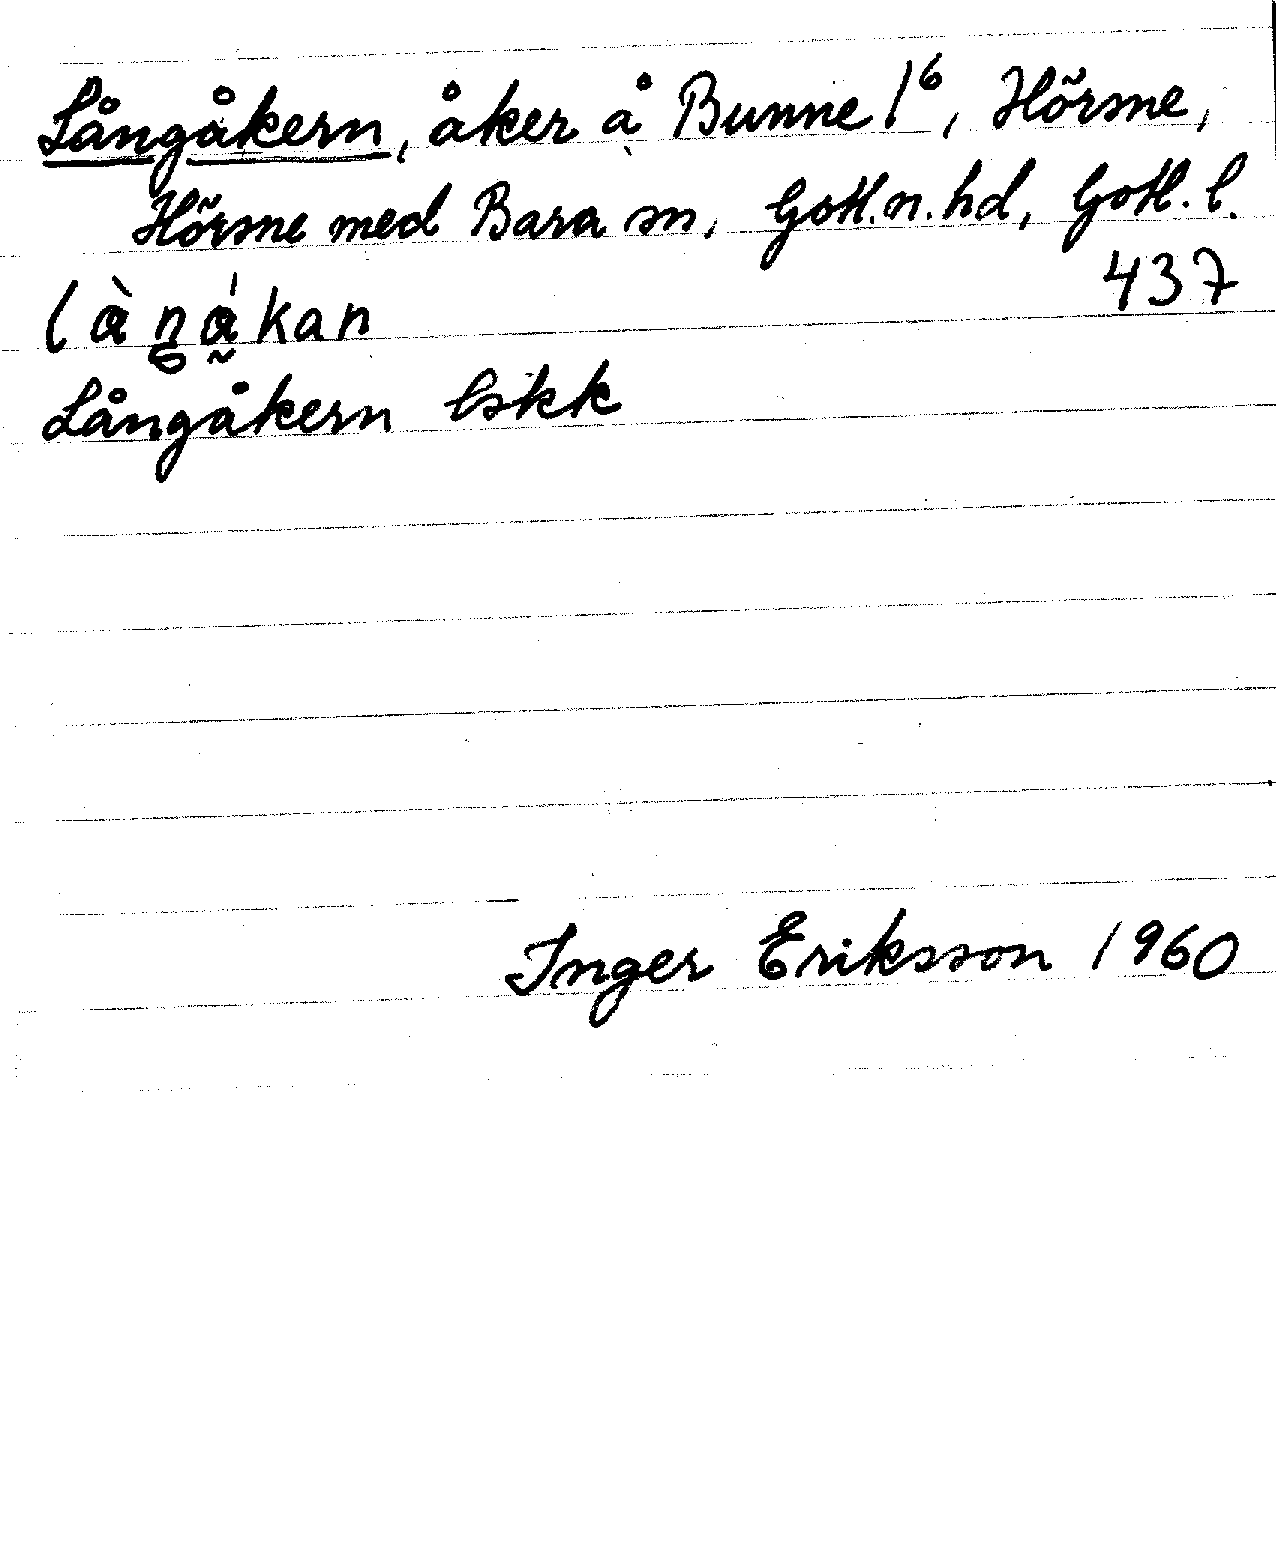 Långåkern, åker å Bunne 1⁶, Hörsne,
Hörsne med Bara sn, Gotl.n.hd, Gotl.l.
437
làŋákan
Långåkern lskk
Inger Eriksson 1960